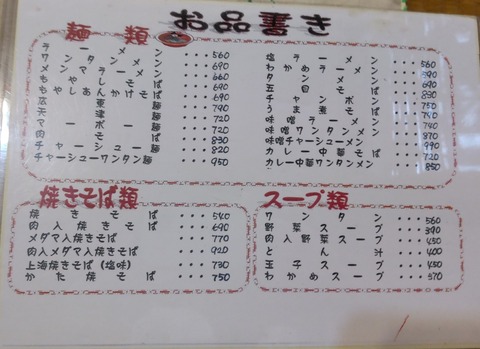 お品書き
麺類
ラーメン・・・560
ワンタンメン・・・690
メンマラーメン・・・660
もやしそば・・・690
もやしあんかけそば・・・690
広東麺・・・790
天津麺・・・720
マーボー麺・・・720
肉そば・・・830
チャーシュー麺・・・820
チャーシューワンタン麺・・・950
塩ラーメン・・・560
わかめラーメン・・・
タンメン・・・690
五目そば・・・
チャンポン・・・750
うま煮そば・・・
味噌ラーメン・・・740
味噌ワンタンメン・・・
味噌チャーシューメン・・・990
カレー中華そば・・・720
カレー中華ワンタンメン・・・850
焼きそば類
焼きそば・・・540
肉入焼きそば・・・690
メダマ入焼きそば・・・770
肉入メダマ入焼きそば・・・920
上海焼きそば(塩味)・・・730
かた焼そば・・・750
スープ類
ワンタン・・・560
野菜スープ・・・390
肉入野菜スープ・・・450
とん汁・・・400
玉子スープ・・・450
わかめスープ・・・370